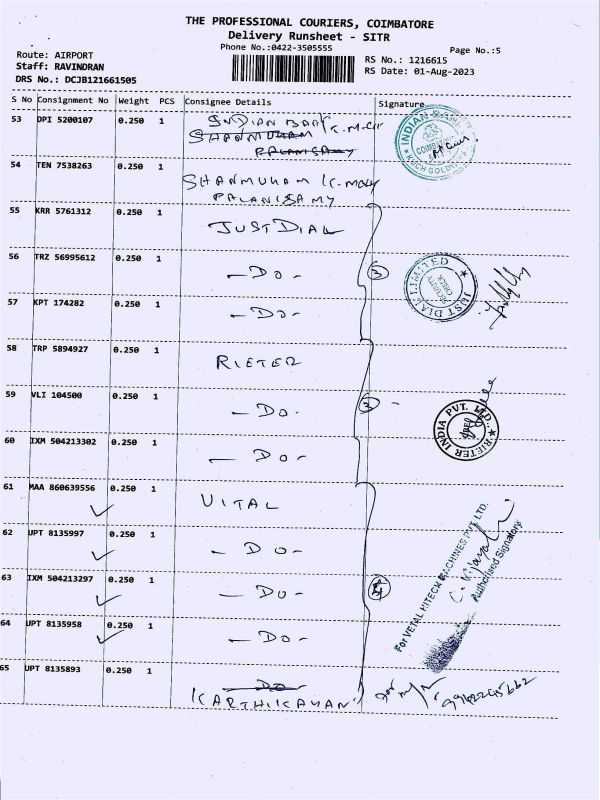 THE PROFESSIONAL COURIERS, COIMBATORE
Delivery Runsheet - SITR
Phone No.:0422-3505555
Page No.:5
Route: AIRPORT
Staff: RAVINDRAN
DRS No.: DCJB121661505
RS No.: 1216615
RS Date: 01-Aug-2023
S No Consignment No Weight PCS Consignee Details Signature
53 DPI 5200107 0.250 1 INDIAN BANK
SHANMUHAM K.M.CH
PALANISAMY
INDIAN BANK
54 TEN 7538263 0.250 1
SHANMUHAM K.MCH
PALANISAMY
55 KRR 5761312 0.250 1 JUSTDIAL
56 TRZ 56995612 0.250 1 - DO - 3
JUST DIAL LIMITED
SECURITY
CHECK
57 KPT 174282 0.250 1 - DO -
58 TRP 5894927 0.250 1 RIETER
59 VLI 104500 0.250 1 - DO - 3 -
RIETER INDIA PVT. LTD.
60 IXM 504213302 0.250 1 - DO -
61 MAA 860639556 0.250 1 VITAL
62 UPT 8135997 0.250 1 - DO -
63 IXM 504213297 0.250 1 - DO -
For VETAL HITECH MACHINES PVT. LTD.
Authorised Signatory
64 UPT 8135958 0.250 1 - DO -
65 UPT 8135893 0.250 1 DO
KARTHIKAYAN